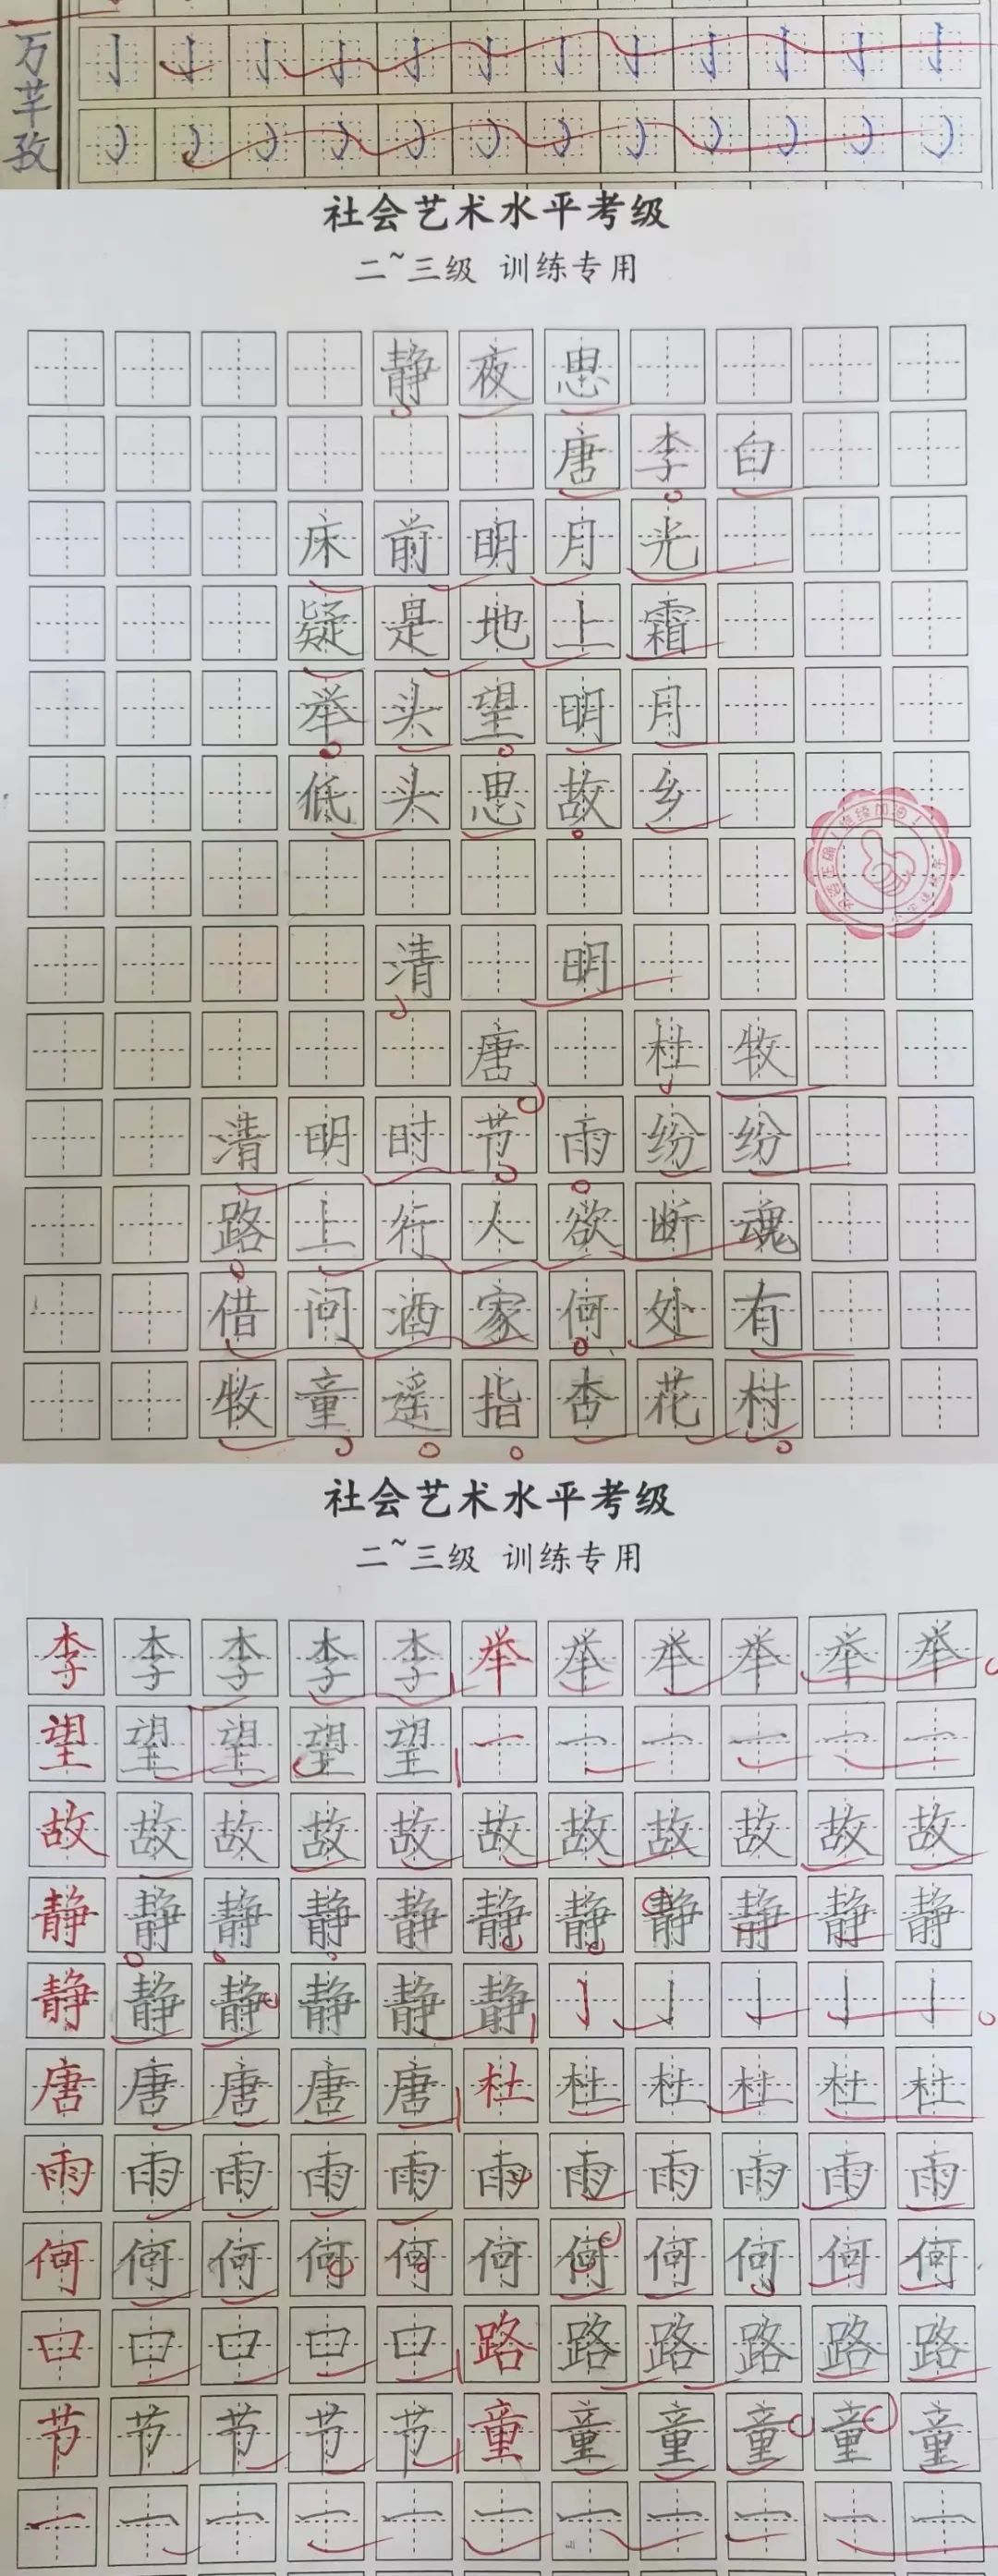 万芊孜
社会艺术水平考级
二~三级 训练专用
静夜思
唐李白
床前明月光
疑是地上霜
举头望明月
低头思故乡
继续加油！
清明
唐杜牧
清明时节雨纷纷
路上行人欲断魂
借问酒家何处有
牧童遥指杏花村
社会艺术水平考级
二~三级 训练专用
李李李李李举举举举举举
望望望望望一一一一一一
故故故故故故故故故故故
静静静静静静静静静静静
静静静静静静亅亅亅亅亅
唐唐唐唐唐杜杜杜杜杜杜
雨雨雨雨雨雨雨雨雨雨雨
何何何何何何何何何何何
口口口口口路路路路路路
节节节节节童童童童童童
一一一一一一一一一一一